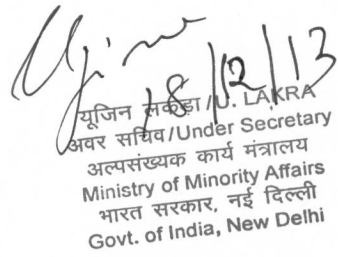 18/12/13
यूजिन लकड़ा / U. LAKRA
अवर सचिव/Under Secretary
अल्पसंख्यक कार्य मंत्रालय
Ministry of Minority Affairs
भारत सरकार, नई दिल्ली
Govt. of India, New Delhi